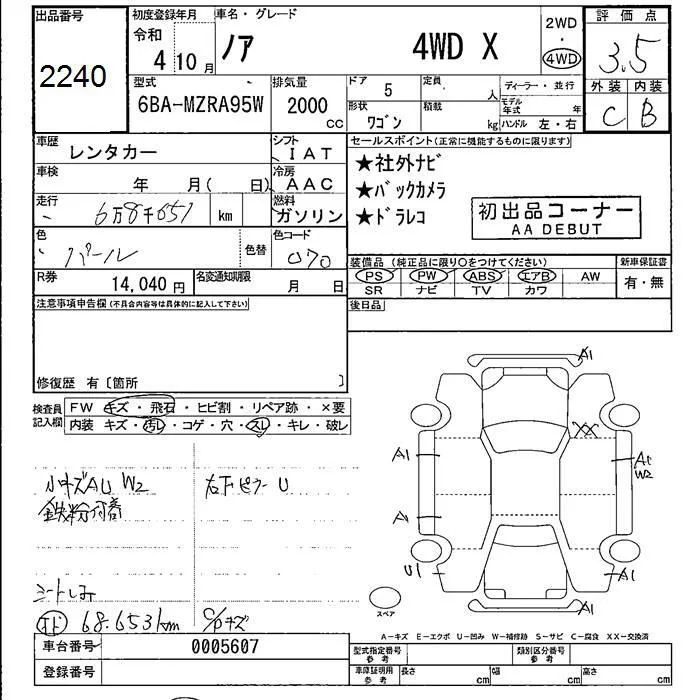 出品番号 初度登録年月 車名・グレード 2WD 評価点
令和
4 10月 ノア 4WD X ・ 4WD 3.5
2240
型式 排気量 ドア 5 定員 人 ディーラー・並行 外装 内装
6BA-MZRA95W 2000 CC 形状 ワゴン 積載 kg モデル年式 年 C B
ハンドル 左・右
車歴 レンタカー シフト IAT セールスポイント(正常に機能するものに限ります)
車検 年 月( 日) 冷房 AAC ★社外ナビ
走行 6万8千651 km 燃料 ガソリン ★バックカメラ
★ドラレコ
初出品コーナー
AA DEBUT
色 パール 色替 色コード 070
装備品(純正品に限り○をつけてください) 新車保証書
R券 14,040円 名変通知期限 月 日 PS PW ABS エアB AW 有・無
SR ナビ TV カワ
注意事項申告欄(不具合内容等は具体的に記入して下さい) 後日品
修復歴 有〔箇所 〕
検査員記入欄 FW キズ・飛石・ヒビ割・リペア跡・×要
内装 キズ・汚レ・コゲ・穴・スレ・キレ・破レ
A1
XX
A1 A1
W2
小キズAU W2 右下ピラーU
鉄粉付着
A
U1 A1
シートしみ
A1
スペア
68.653km C/Pキズ
A-キズ E-エクボ U-凹み W-補修跡 S-サビ C-腐食 XX-交換済
車台番号 0005607 型式指定番号 参考 類別区分番号 参考
登録番号 車庫証明用 参考 長さ cm 幅 cm 高さ cm